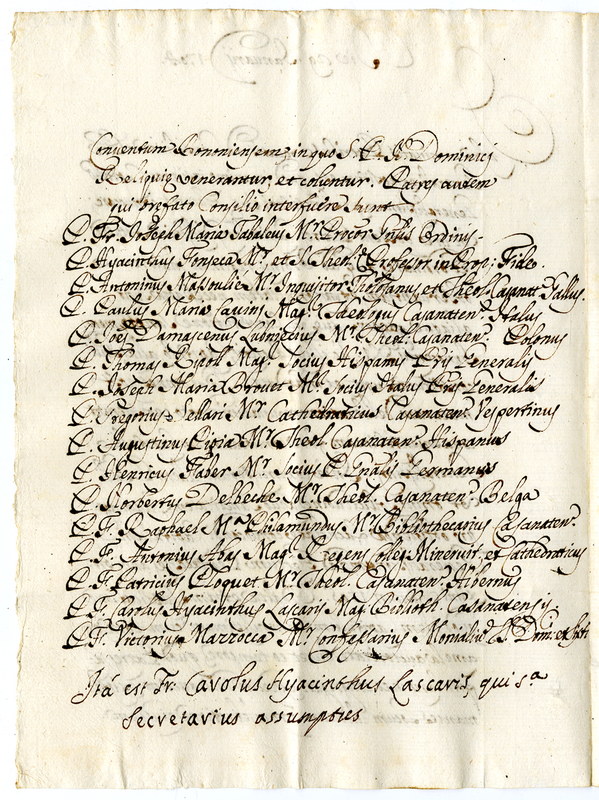 Conventum Bononiensem, in quo S. P. N. Dominici
Reliquię venerantur, et coluntur. Patres autem
qui prefato Consilio interfuere sunt
P. Fr. Joseph Maria Mr. Ordinis.
P. Hyacinthus Fonseca Mr. et S. Theol. Professor in Prop: Fide.
P. Antoninus Massoulié Mr. Inquisitor Tholosanus et Theol. Casanat. Gallus.
P. Paulus Maria Mag. Theologus Casanaten. Italus
P. Joes Damascenus Mr. Theol. Casanaten. Polonus
P. Thomas Ripoll Mag. Socius Hispanus Pris Generalis
P. Joseph Maria Mr. Socius Italus Pris Generalis
P. Gregorius Sellari Mr. Cathedraticus Casanaten. Vespertinus
P. Augustinus Pipia Mr. Theol. Casanaten. Hispanus
P. Henricus Faber Mr. Socius P. Gnalis Germanus
P. Norbertus Delbecke Mr. Theol. Casanaten. Belga
P. F. Raphael Ma. Philamundus Mr. Bibliothecarius Casanaten.
P. F. Antonius Mag. Regens Coleg. Minervit. et Cathedraticus
P. F. Patricius Mr. Theol. Casanaten. Hibernus
P. F. Carolus Hyacinthus Lascaris Mag. Biblioth. Casanatensis
P. F. Victorius Mazzocca Mr. Confessarius Monialiũ S. Dom. et Sixti
Ità est Fr: Carolus Hyacinthus Lascaris, qui sa
Secretarius assumptus